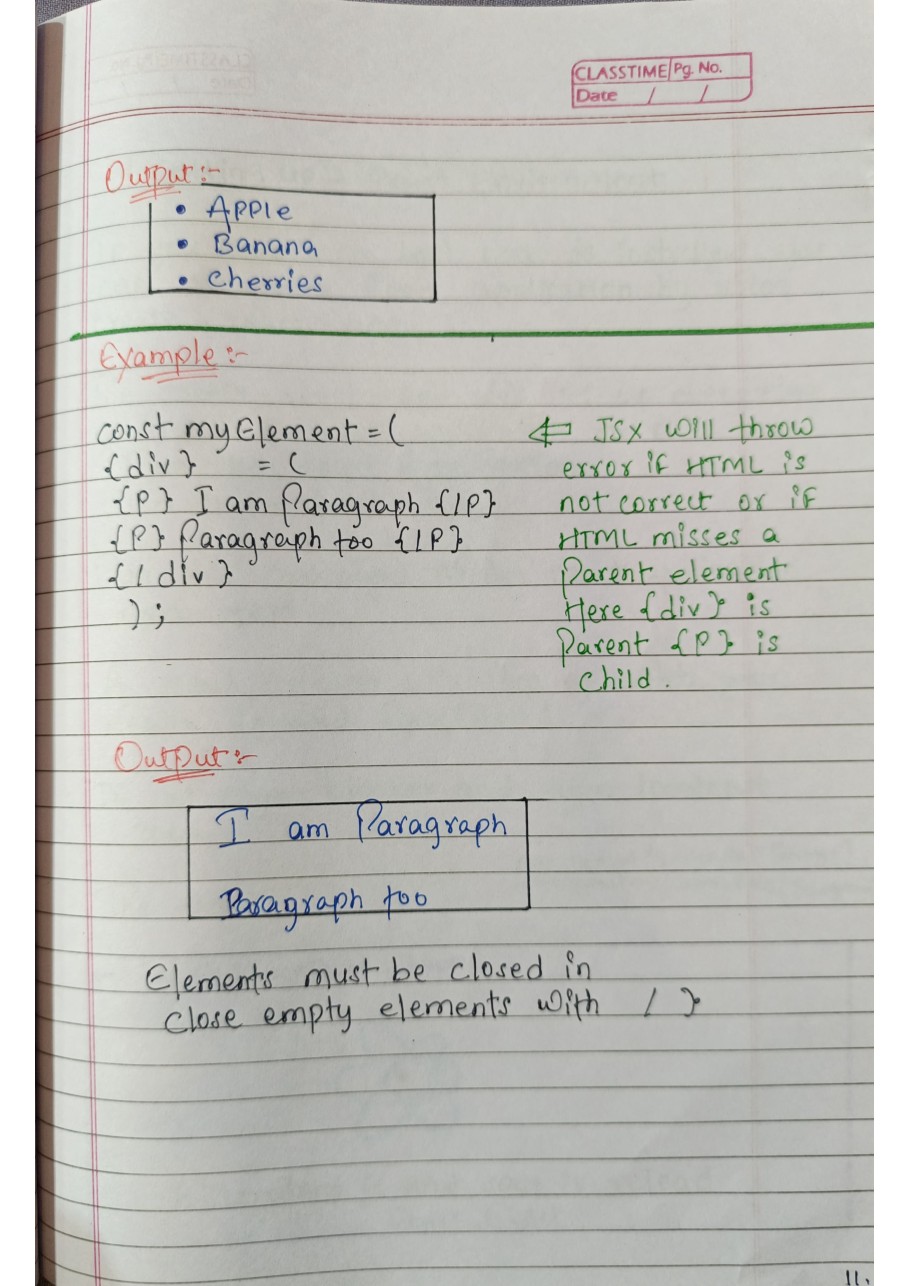 CLASSTIME Pg. No.
Date / /
Output :-
• Apple
• Banana
• Cherries
Example :-
const myElement = (
{div} = (
{P} I am Paragraph {/P}
{P} Paragraph too {/P}
{/div}
);
⇐ JSX will throw
error if HTML is
not correct or if
HTML misses a
Parent element
Here {div} is
Parent {P} is
Child.
Output :-
I am Paragraph
Paragraph too
Elements must be closed in
Close empty elements with / }
11.